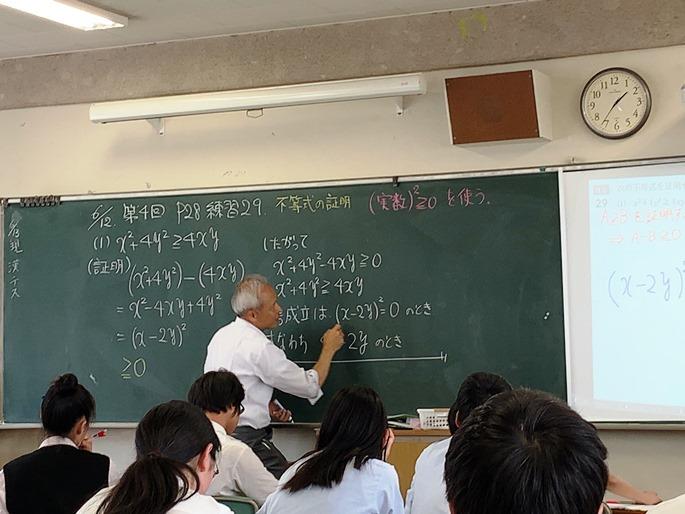 6/12. 第4回 P28 練習29. 不等式の証明 (実数)²≧0 を使う.
(1) x²+4y²≧4xy
(証明) (x²+4y²)-(4xy)
=x²-4xy+4y²
=(x-2y)²
≧0
したがって
x²+4y²-4xy≧0
x²+4y²≧4xy
成立は (x-2y)²=0 のとき
なわち 2y のとき
漢テス
29
A≧Bを証明
⇒ A-B≧0
(x-2y)²